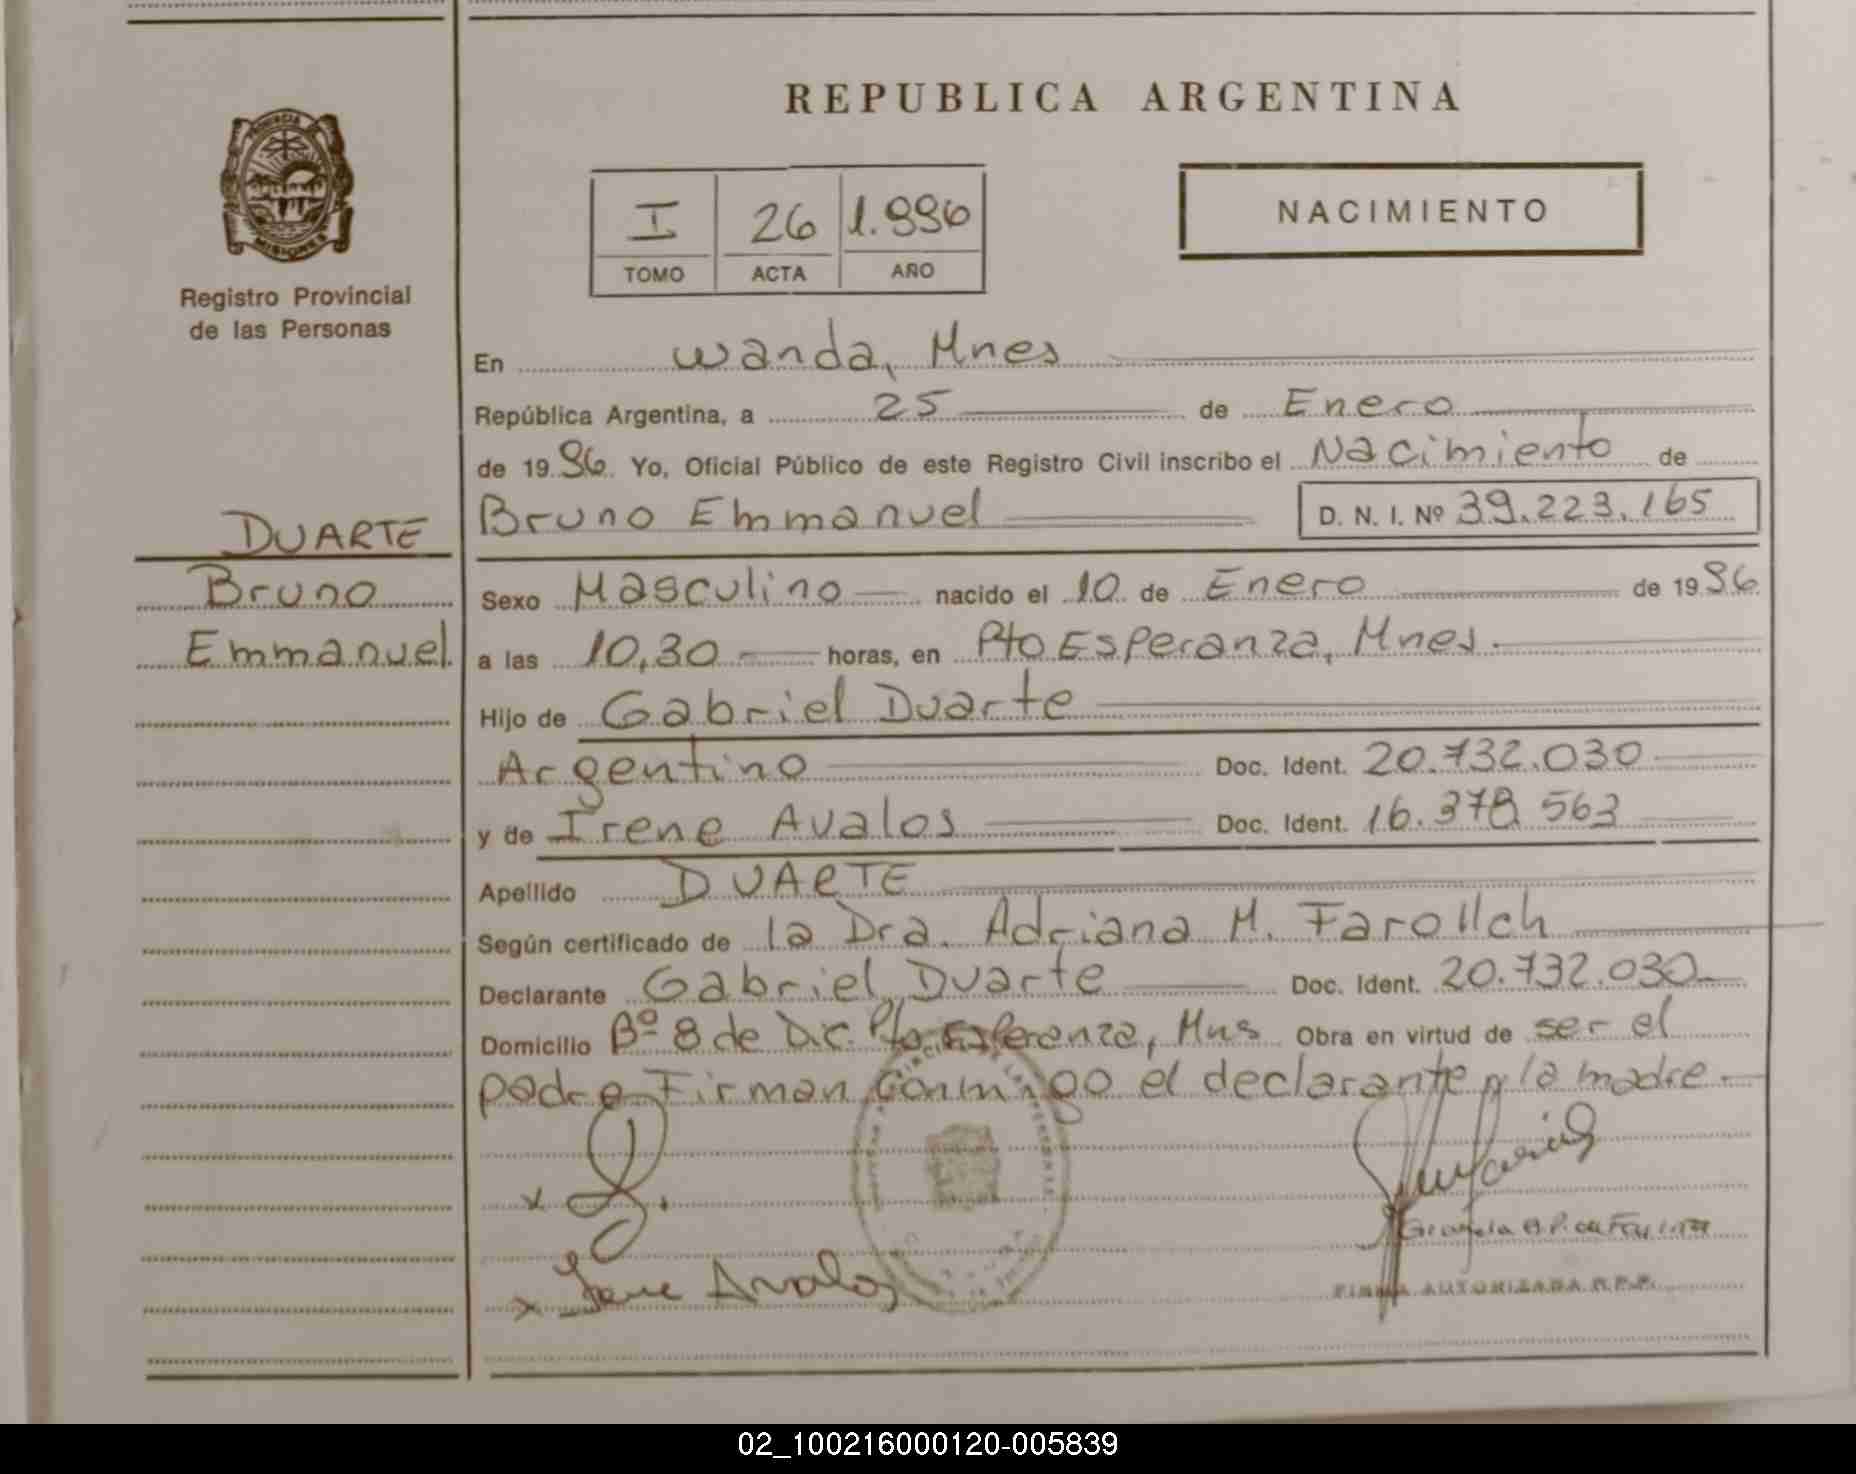 REPUBLICA ARGENTINA
PROVINCIA DE
MISIONES
Registro Provincial
de las Personas
I 26 1.996
TOMO ACTA AÑO
NACIMIENTO
En Wanda, Mnes
República Argentina, a 25 de Enero
de 1996. Yo, Oficial Público de este Registro Civil inscribo el Nacimiento de
Bruno Emmanuel D. N. I. Nº 39.223.165
DUARTE
Bruno
Emmanuel
Sexo Masculino nacido el 10 de Enero de 1996
a las 10,30 horas, en Pto Esperanza, Mnes.
Hijo de Gabriel Duarte
Argentino Doc. Ident. 20.732.030
y de Irene Avalos Doc. Ident. 16.378.563
Apellido DUARTE
Según certificado de la Dra. Adriana M. Farollch
Declarante Gabriel Duarte Doc. Ident. 20.732.030
Domicilio Bº 8 de Dic. Pto Esperanza, Mns Obra en virtud de ser el
padre Firman conmigo el declarante y la madre
x
x Irene Avalos
FIRMA AUTORIZADA R.P.P.
02_100216000120-005839